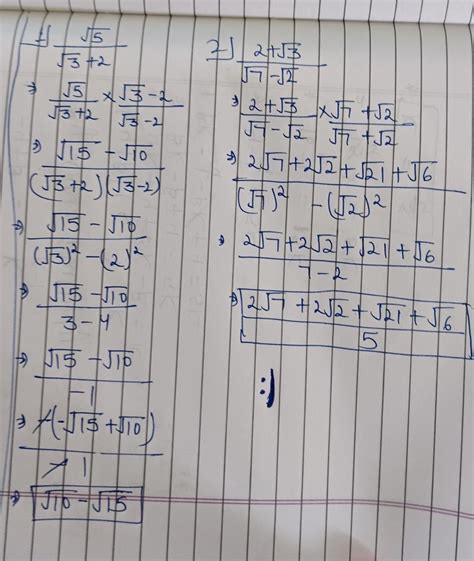 1) √5 / (√3 + 2)
⇒ √5 / (√3 + 2) × (√3 - 2) / (√3 - 2)
⇒ (√15 - √10) / ((√3 + 2)(√3 - 2))
⇒ (√15 - √10) / ((√3)² - (2)²)
⇒ (√15 - √10) / (3 - 4)
⇒ (√15 - √10) / -1
⇒ -(-√15 + √10) / -1
⇒ √10 - √15
2) (2 + √3) / (√7 - √2)
⇒ (2 + √3) / (√7 - √2) × (√7 + √2) / (√7 + √2)
⇒ (2√7 + 2√2 + √21 + √6) / ((√7)² - (√2)²)
⇒ (2√7 + 2√2 + √21 + √6) / (7 - 2)
⇒ (2√7 + 2√2 + √21 + √6) / 5
:)